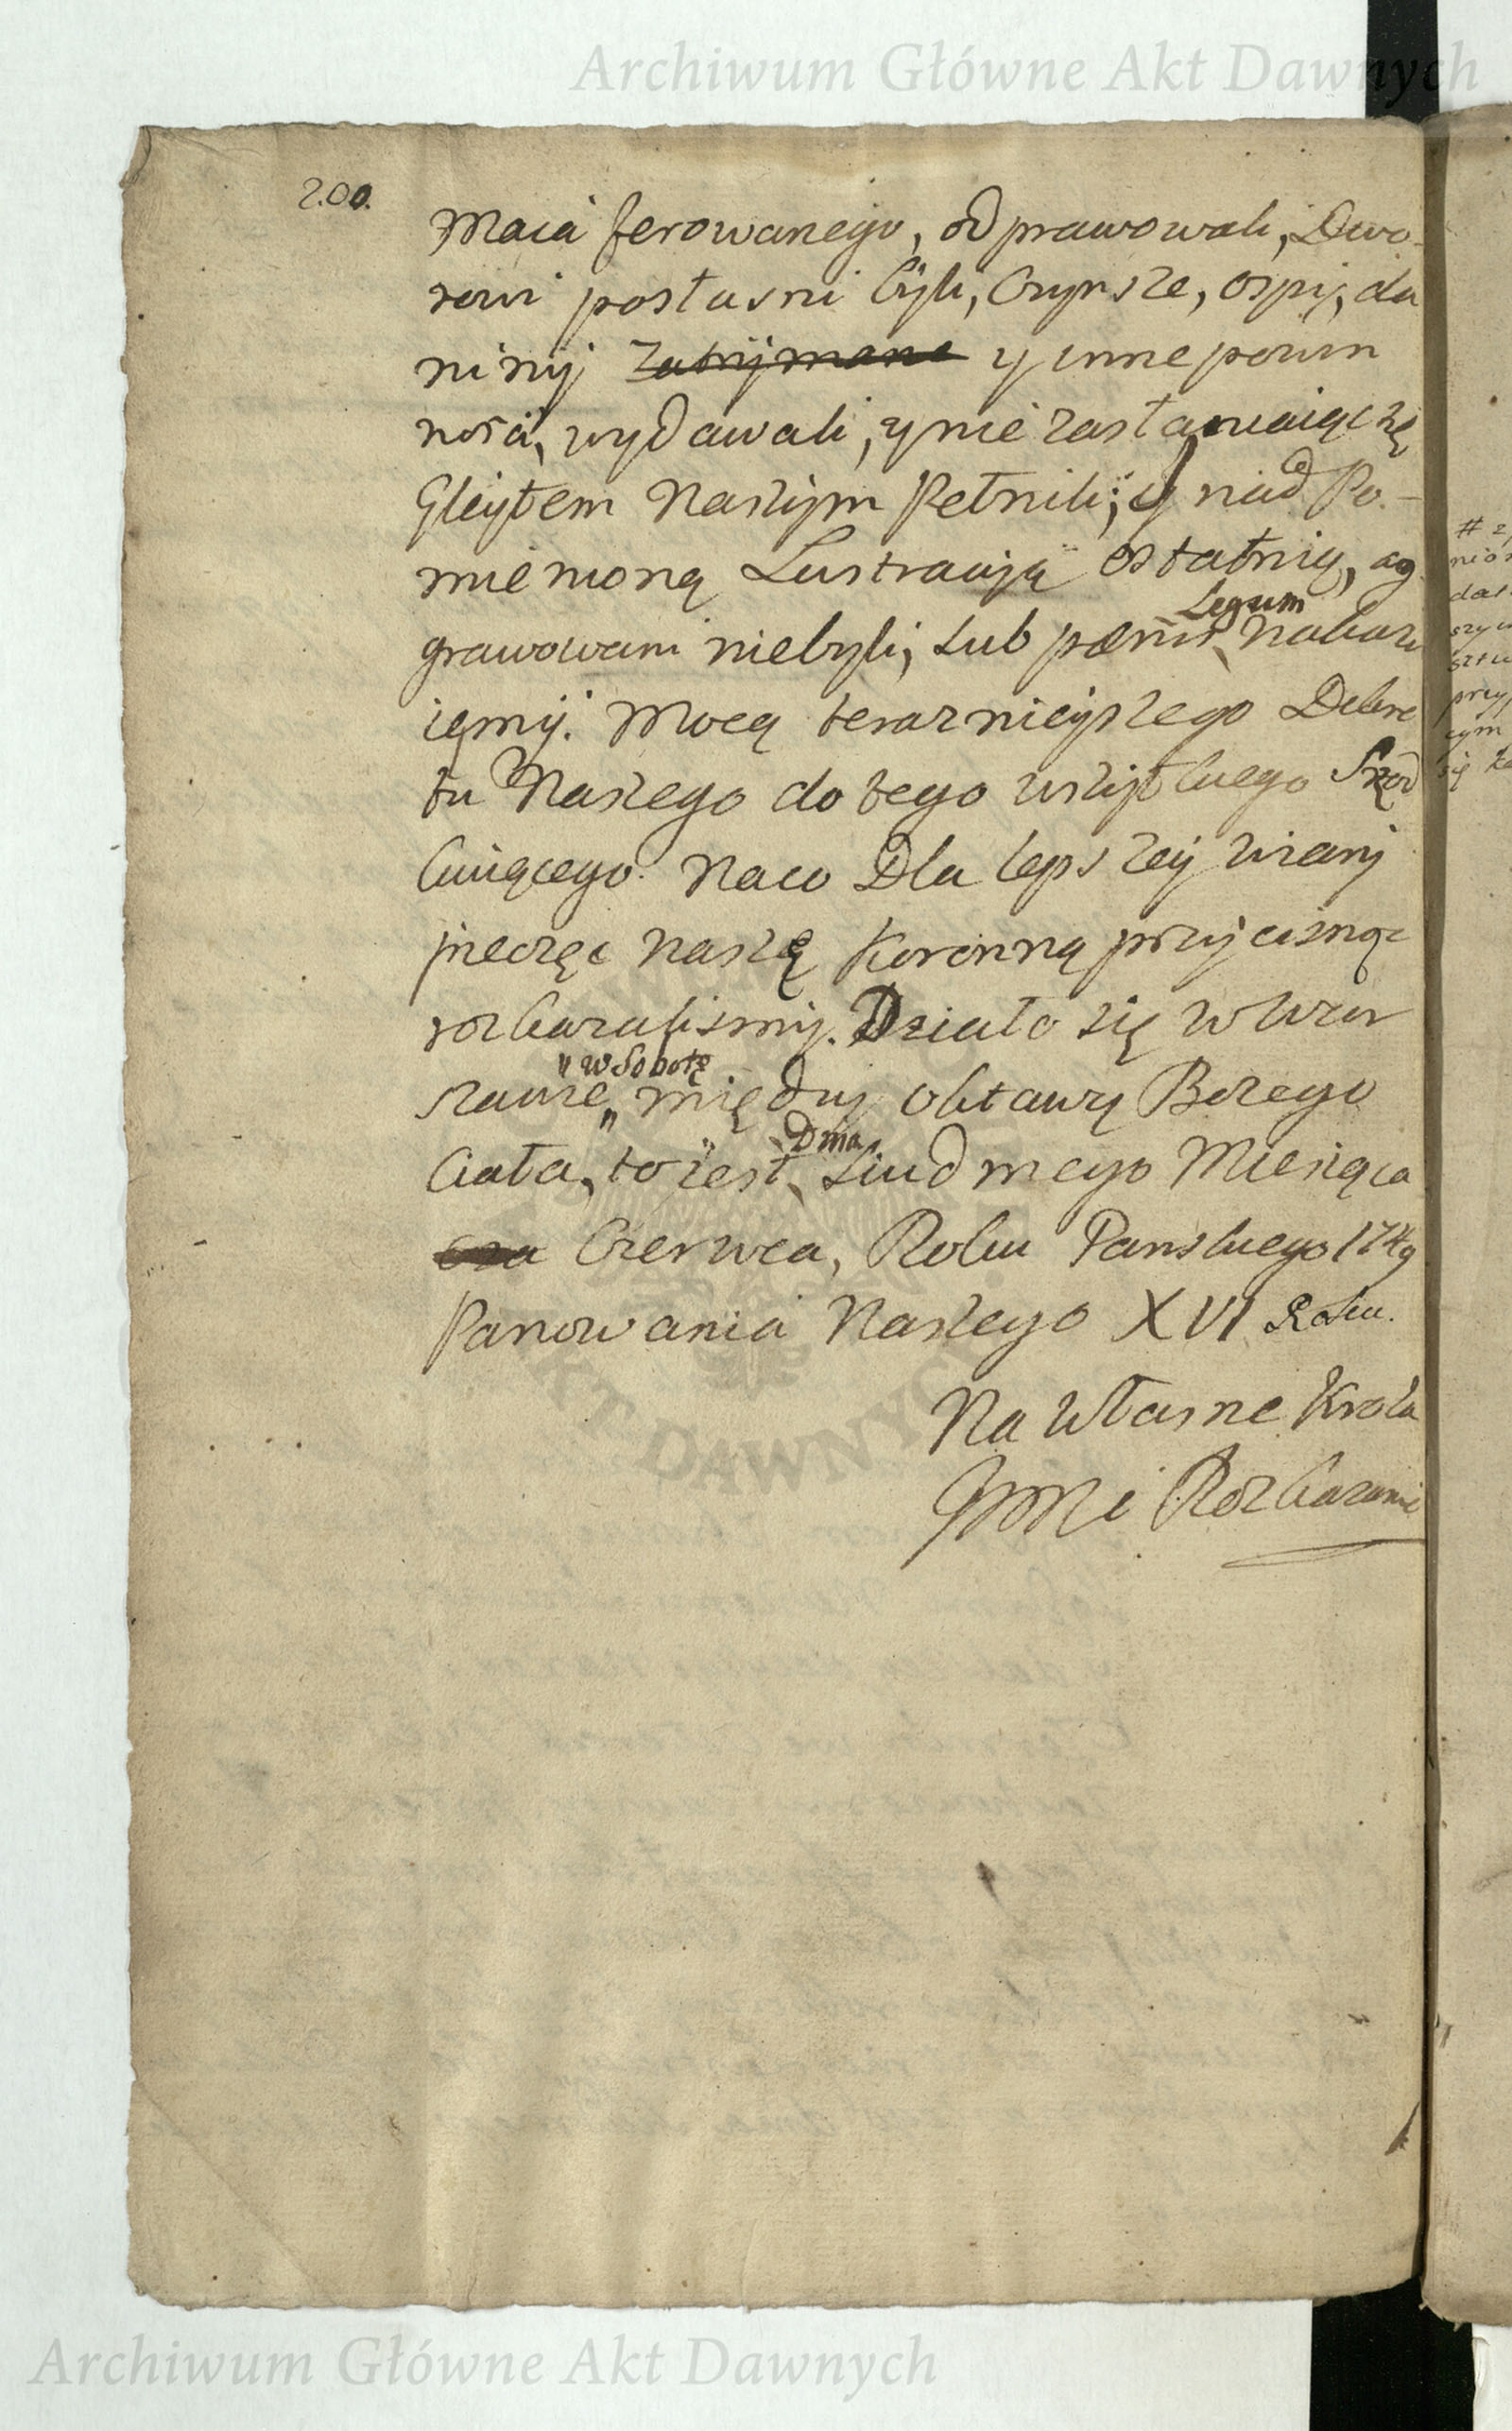 Archiwum Główne Akt Dawnych
200.
Maia ferowanego, odprawowali, Dwo-
rowi posłusni byli, Czynsze, ospy, da
niny Zatrzymane y inne powin
nosci, wydawali, y nie zasłaniaiąc się
Gleytem Naszym Pełnili; y nad Po-
mienioną Lustracyią ostatnią, ag
grawowani niebyli, sub pœnis Legum Nakazu
iemy. Mocą teraznieyszego Dekre
tu Naszego do tego wszystkiego
kuiącego. Naco Dla lepszey wiary
pieczęc naszę Koronną przycisnąc
rozkazalismy. Działo się w War
szawie "w Sobotę" między oktawą Bożego
Ciała, to iest, Dnia Siudmego Miesiąca
cza Czerwca, Roku Panskiego 1749
Panowania Naszego XVI Roku.
Na Własne Krola
JMMci Rozkazanie
Archiwum Główne Akt Dawnych